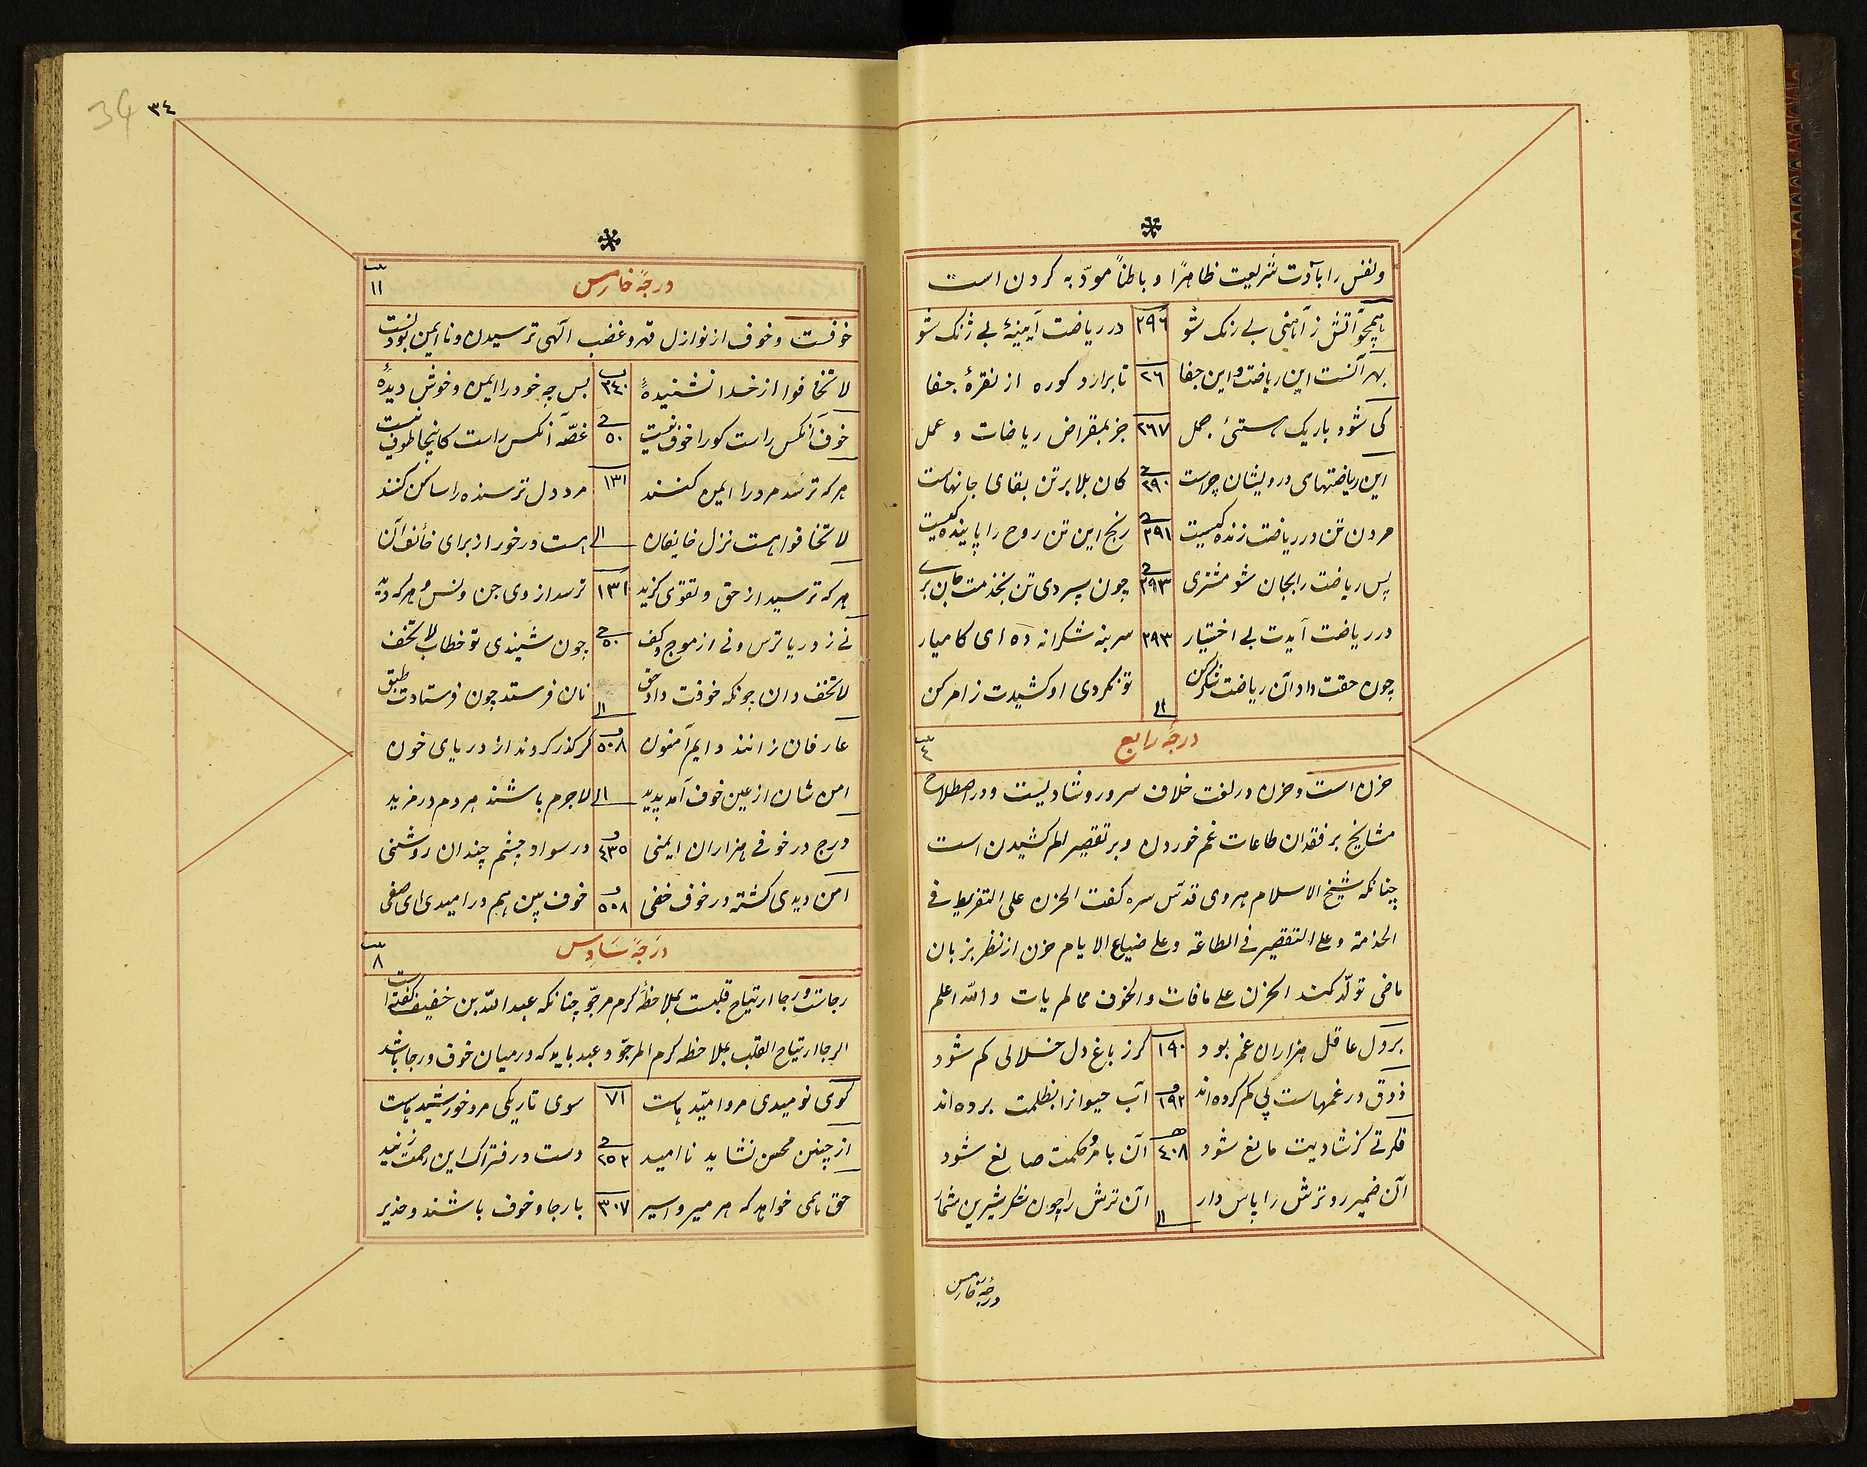 ونفس را بآدات شریعت ظاهرًا و باطناً مودّبه کردن است
همچو آتش ز آهنی بی رنک شو ٢٩٦ در ریاضت آیینهٔ بی ژنک شو
بهر آنست این ریاضت واین جفا ٢٦ تا برارد کوره از نقرهٔ جفا
کی شود باریک هستیٔ جمل ٢٦٧ جز بمقراض ریاضات و عمل
این ریاضتهای درویشان چراست ٢٩٠ کان بلا بر تن بقای جانهاست
مردن تن در ریاضت زندکیست ٢٩١ رنج این تن روح را پایندکیست
پس ریاضت را بجان شو مشتری ٢٩٣ چون سپردی تن بخدمت جان بری
در ریاضت آیدت بی اختیار ٢٩٣ سر بنه شکرانه ده ای کامیار
چون حقت داد آن ریاضت شکر کن تو نکردی او کشیدت ز امر کن
درجهٔ رابع
٤
حزن است وحزن در لغت خلاف سرور وشادیست ودر اصطلاح
مشایخ بر فقدان طاعات غم خوردن وبر تقصیر الم کشیدن است
چنانکه شیخ الاسلام هروی قدّس سره کفت الحزن علی التفریط فی
الخدمة وعلی التقصیر فی الطاعه وعلی ضیاع الایام حزن از نظر بزبان
ماضی تولّد کند الحزن علی مافات والخوف مما لم یات والله اعلم
بر دل عاقل هزاران غم بود ١٩٠ کر ز باغ دل خلالی کم شود
ذوق در غمهاست پی کم کرده اند ١٩٢ آب حیوانرا بظلمت برده اند
فکرتی کز شادیت مانع شود ٤٠٨ آن بامر وحکمت صانع شود
آن ضمیر رو ترش را پاس دار آن ترش را چون شکر شیرین شمار
درجهٔ خامس
٣٤
34
درجهٔ خامس
١١
خوفست وخوف از نوازل قهر وغضب الهی ترسیدن ونا ایمن بودنست
لا تخافوا از خدا نشنیدهٔ ٣٤٠ پس چه خود را ایمن وخوش دیدهٔ
خوف آنکس راست کورا خوف نیست ٥٠ غصّه آنکس راست کاینجا طوف نیست
هر که ترسد مرورا ایمن کنند ١٣١ مر دل ترسنده را ساکن کنند
لا تخافوا هست نزل خایفان هست در خور از برای خائف آن
هر که ترسید از حق وتقوی کزید ١٣١ ترسد از وی جن وانس وهر که دید
نی ز دریا ترس ونی از موج وکف ٥٠ چون شنیدی تو خطاب لا تخف
لا تخف دان چونکه خوفت داد حق نان فرستد چون فرستادت طبق
عارفان زانند دایم آمنون ٥٠٨ که کذر کردند از دریای خون
امن شان از عین خوف آمد پدید لاجرم باشند هر دم در مزید
درج در خوفی هزاران ایمنی ٤٣٥ در سواد چشم چندان روشنی
امن دیدی کشته در خوف خفی ٥٠٨ خوف بین هم در امیدی ای صفی
درجهٔ سادس
٨
رجاست ورجا ارتیاح قلبست بملاحظهٔ کرم مرجوّ چنانکه عبد الله بن خفیف کفته است
الرجا ارتیاح القلب بملاحظه کرم المرجوّ وعبد باید که در میان خوف ورجا باشد
کوی نومیدی مرو امیّد هاست ٧١ سوی تاریکی مرو خورشید هاست
از چنین محسن نشاید ناامید ٢٥٢ دست در فتراک این رحمت زنید
حق همی خواهد که هر میر واسیر ٣٠٧ با رجا وخوف باشند وحذیر